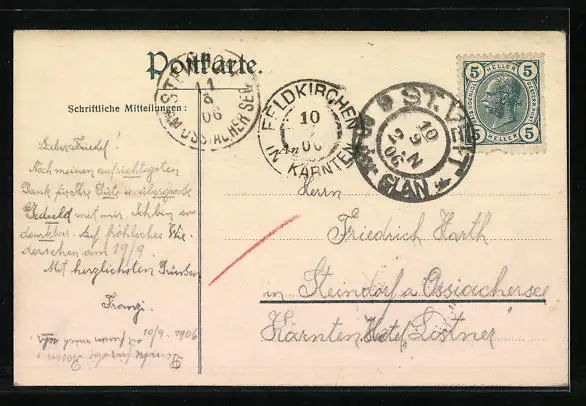 Postkarte.
Schriftliche Mitteilungen:
STEINDORF
11
9
06
AM OSSIACHER SEE
FELDKIRCHEN
10
06
IN KÄRNTEN
ST. VEIT
10
9
06
N
a.d. GLAN
5 HELLER 5
5 5
Lieber Friedl!
Noch meinen aufrichtigsten
Dank für Ihre Güte u. übergroße
Geduld mit mir. Ich bin so
dankbar. Auf fröhliches Wie-
dersehen am 19/9.
Mit herzlichsten Grüßen
Franzi.
10/9. 1906
Herrn
Friedrich Harth
in Steindorf a. Ossiachersee
Kärnten Hotel Lostner